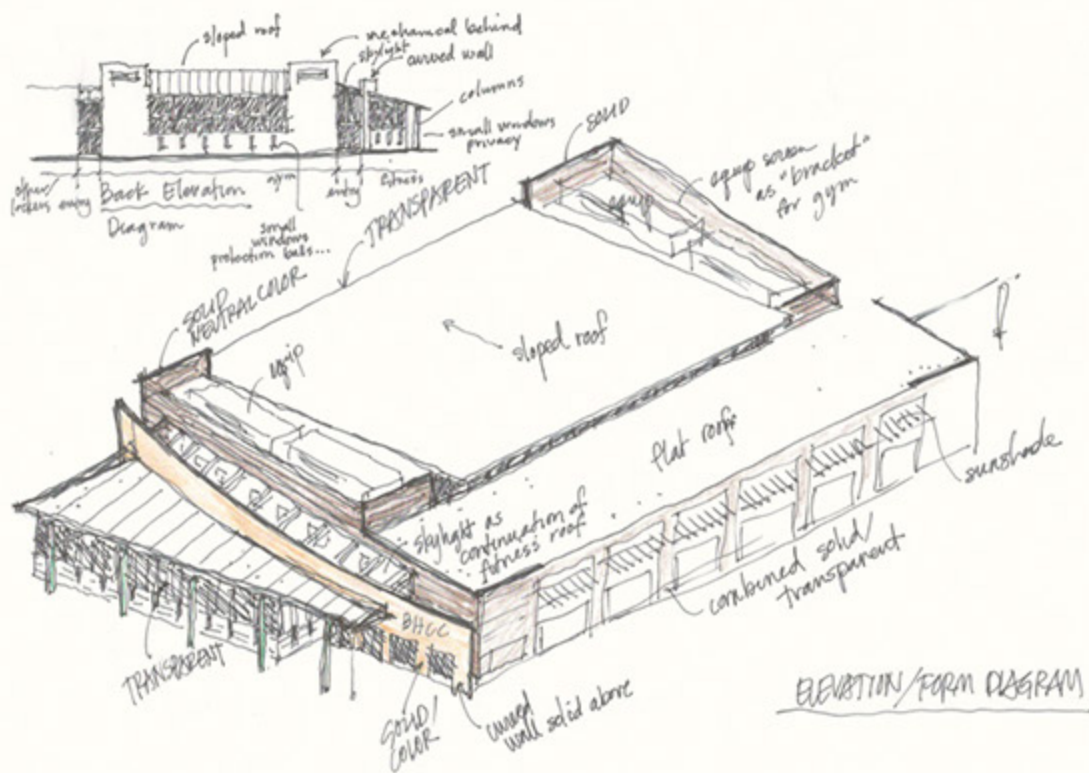 sloped roof
mechanical behind
skylight
curved wall
columns
small windows
privacy
office/
lockers
entry
gym
entry
fitness
Back Elevation
Diagram
small
windows
protection balls...
TRANSPARENT
SOLID
equip screen
as "bracket"
for gym
equip
SOLID
NEUTRAL COLOR
equip
sloped roof
flat roofs
sunshade
skylight as
continuation of
fitness roof
combined solid/
transparent
BHCC
TRANSPARENT
SOLID/
COLOR
curved
wall solid above
ELEVATION/FORM DIAGRAM